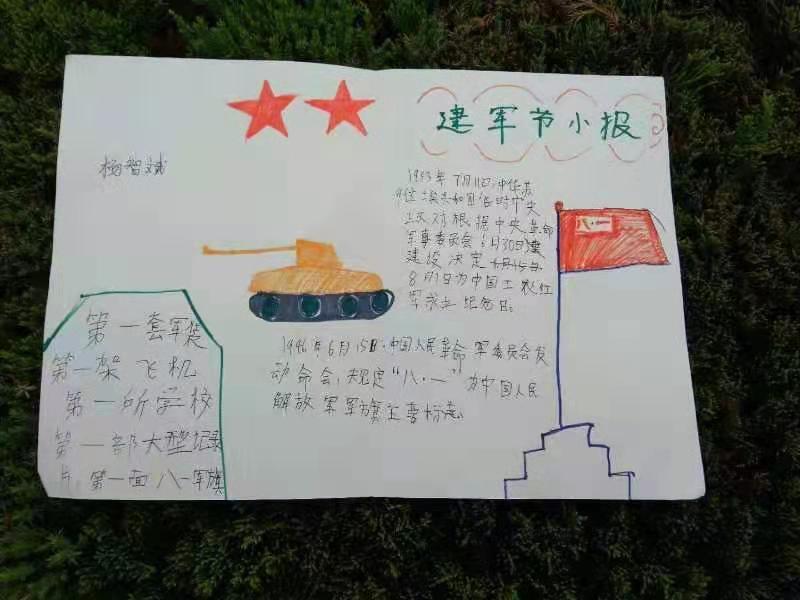 建军节小报
杨智斌
1933年7月11日,中华苏
时中央
根据中央革命
军事委员会6月30日建
建设决定
8月1日为中国工农红
军成立纪念日。
八·一
1946年6月15日·中国人民革命军委员会发
动命会,规定“八·一”为中国人民
解放军军旗主要标志。
第一套军装
第一架飞机
第一所学校
第一部大型记录
片,第一面八一军旗